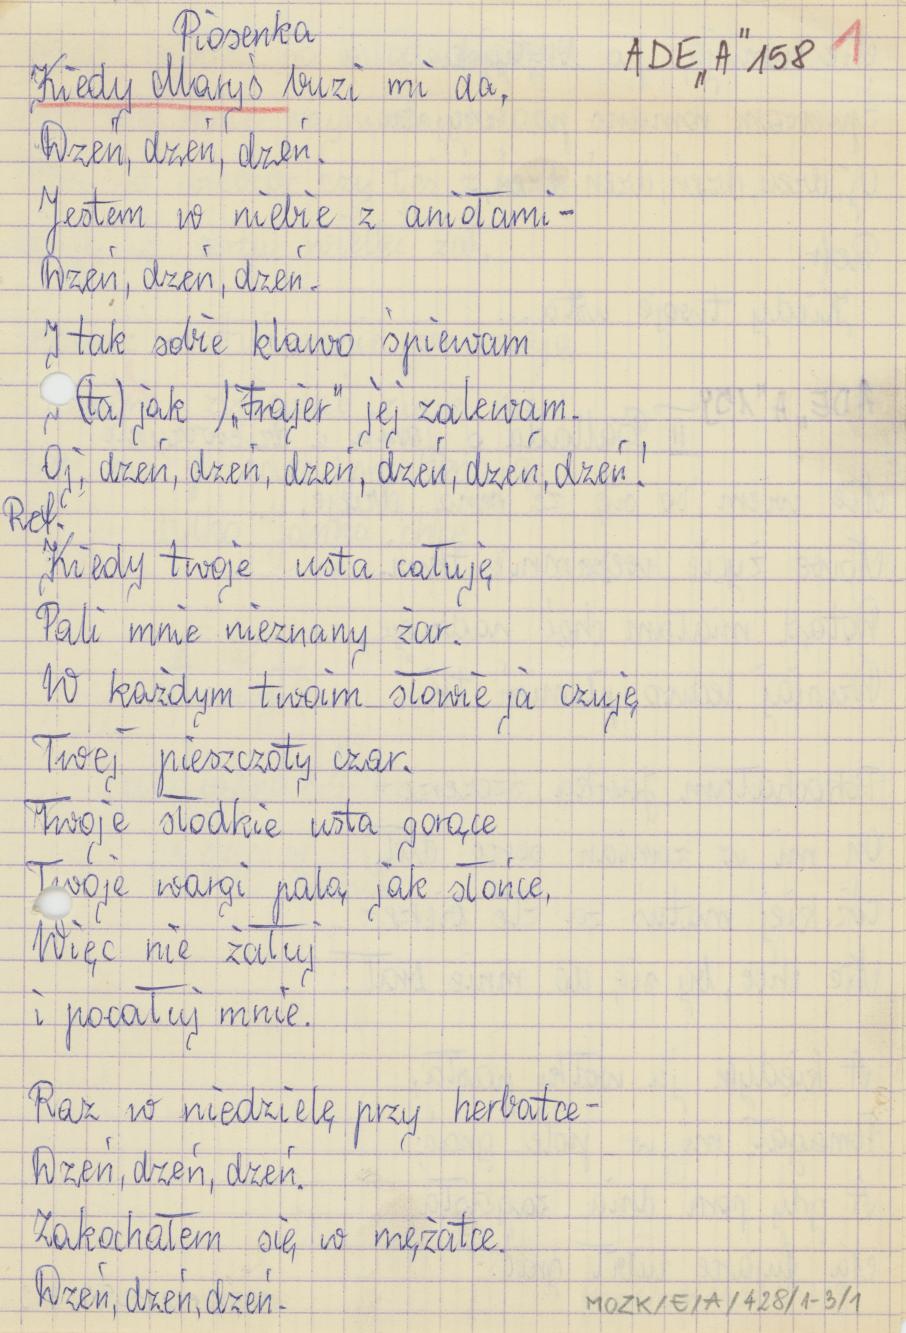 Piosenka
ADE„A" 158 1
Kiedy Maryś buzi mi da,
Dzeń, dzeń, dzeń.
Jestem w niebie z aniołami-
Dzeń, dzeń, dzeń.
I tak sobie klawo śpiewam
(ta) jak „frajer" jej zalewam.
Oj, dzeń, dzeń, dzeń, dzeń, dzeń, dzeń!
Ref.
Kiedy twoje usta całuję
Pali mnie nieznany żar.
W każdym twoim słowie ja czuję
Twej pieszczoty czar.
Twoje słodkie usta gorące
Twoje wargi palą jak słońce,
Więc nie żałuj
i pocałuj mnie.
Raz w niedzielę przy herbatce-
Dzeń, dzeń, dzeń.
Zakochałem się w mężatce.
Dzeń, dzeń, dzeń.
MOZK/E/A/428/1-3/1